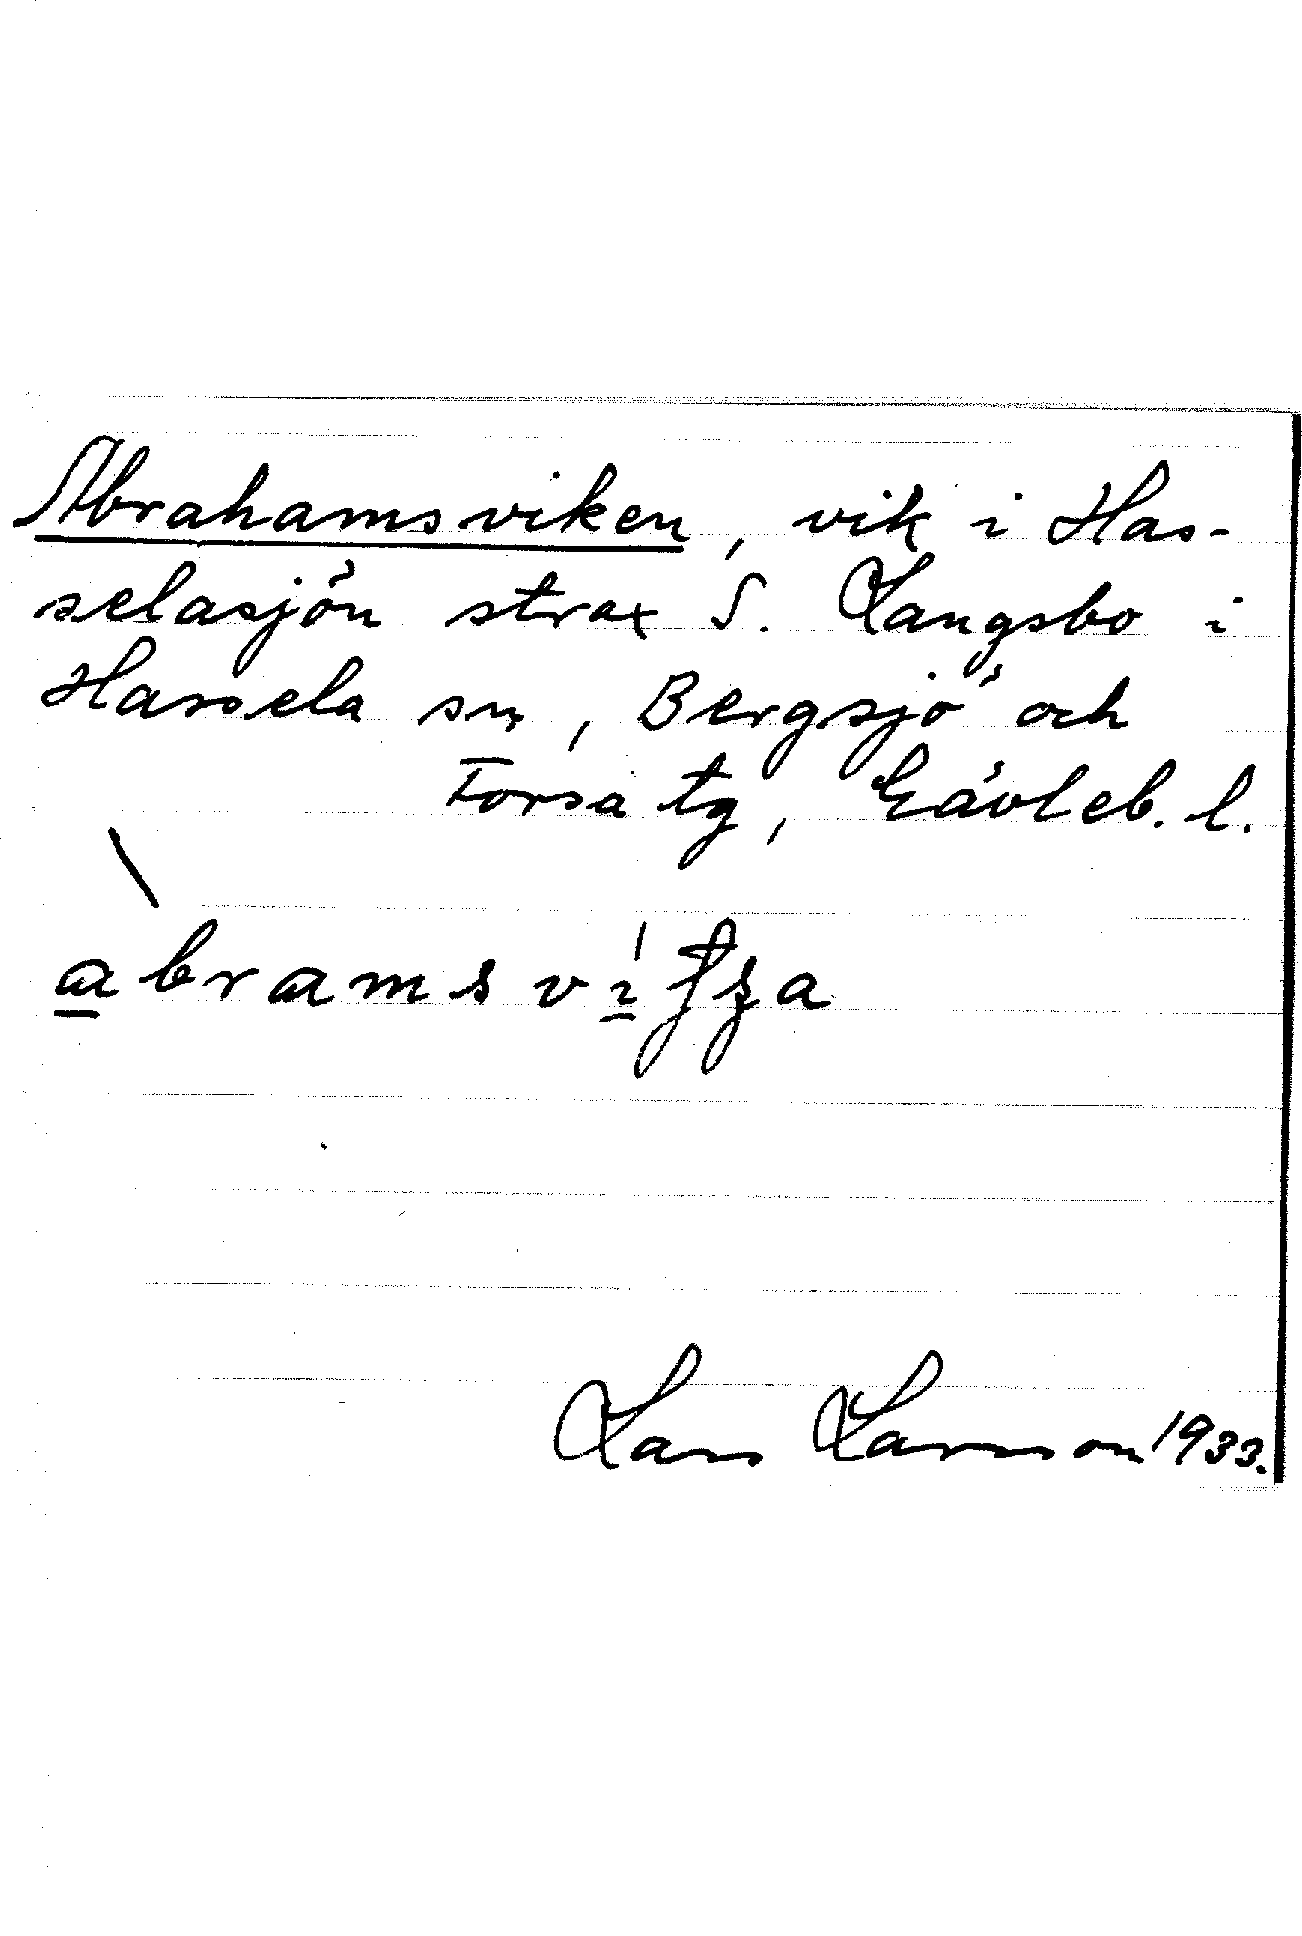 Abrahamsviken, vik i Has-
selasjön strax S. Langsbo i
Hassela sn, Bergsjö och
Forsa tg, Gävleb. l.
Lars Larsson 1933.